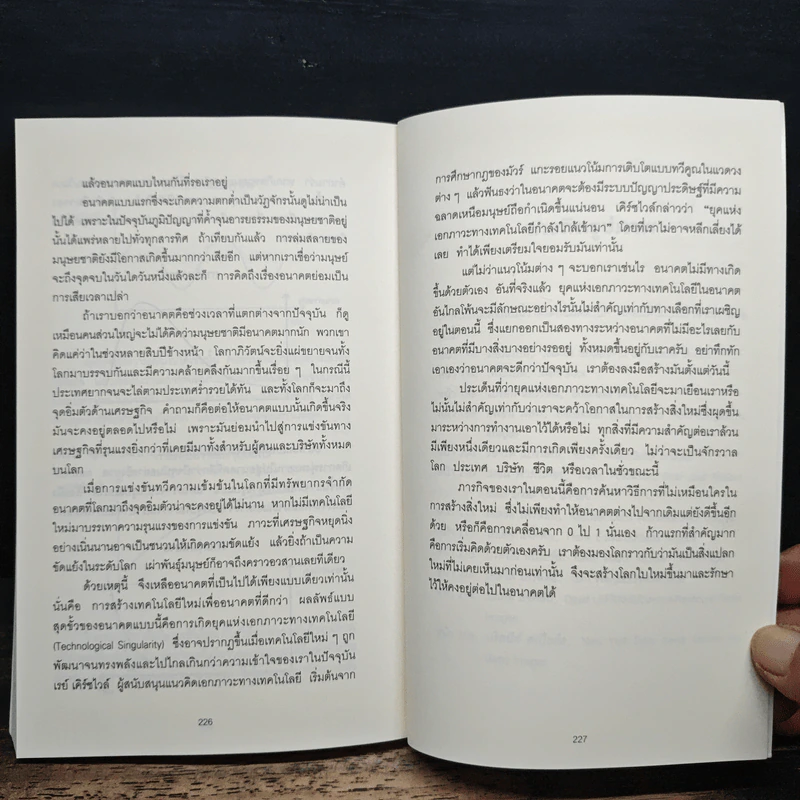 แล้วอนาคตแบบไหนกันที่รอเราอยู่
อนาคตแบบแรกซึ่งจะเกิดความตกต่ำเป็นวัฏจักรนั้นดูไม่น่าเป็น
ไปได้ เพราะในปัจจุบันภูมิปัญญาที่ค้ำจุนอารยธรรมของมนุษยชาติอยู่
นั้นได้แพร่หลายไปทั่วทุกสารทิศ ถ้าเทียบกันแล้ว การล่มสลายของ
มนุษยชาติยังมีโอกาสเกิดขึ้นมากกว่าเสียอีก แต่หากเราเชื่อว่ามนุษย์
จะถึงจุดจบในวันใดวันหนึ่งแล้วละก็ การคิดถึงเรื่องอนาคตย่อมเป็น
การเสียเวลาเปล่า
ถ้าเราบอกว่าอนาคตคือช่วงเวลาที่แตกต่างจากปัจจุบัน ก็ดู
เหมือนคนส่วนใหญ่จะไม่ได้คิดว่ามนุษยชาติมีอนาคตมากนัก พวกเขา
คิดแค่ว่าในช่วงหลายสิบปีข้างหน้า โลกาภิวัตน์จะยิ่งแผ่ขยายจนทั้ง
โลกมาบรรจบกันและมีความคล้ายคลึงกันมากขึ้นเรื่อย ๆ ในกรณีนี้
ประเทศยากจนจะไล่ตามประเทศร่ำรวยได้ทัน และทั้งโลกก็จะมาถึง
จุดอิ่มตัวด้านเศรษฐกิจ คำถามก็คือต่อให้อนาคตแบบนั้นเกิดขึ้นจริง
มันจะคงอยู่ตลอดไปหรือไม่ เพราะมันย่อมนำไปสู่การแข่งขันทาง
เศรษฐกิจที่รุนแรงยิ่งกว่าที่เคยมีมาทั้งสำหรับผู้คนและบริษัททั้งหมด
บนโลก
เมื่อการแข่งขันทวีความเข้มข้นในโลกที่มีทรัพยากรจำกัด
อนาคตที่โลกมาถึงจุดอิ่มตัวน่าจะคงอยู่ได้ไม่นาน หากไม่มีเทคโนโลยี
ใหม่มาบรรเทาความรุนแรงของการแข่งขัน ภาวะที่เศรษฐกิจหยุดนิ่ง
อย่างเนิ่นนานอาจเป็นชนวนให้เกิดความขัดแย้ง แล้วยิ่งถ้าเป็นความ
ขัดแย้งในระดับโลก เผ่าพันธุ์มนุษย์ก็อาจถึงคราวอวสานเลยทีเดียว
ด้วยเหตุนี้ จึงเหลืออนาคตที่เป็นไปได้เพียงแบบเดียวเท่านั้น
นั่นคือ การสร้างเทคโนโลยีใหม่เพื่ออนาคตที่ดีกว่า ผลลัพธ์แบบ
สุดขั้วของอนาคตแบบนี้คือการเกิดยุคแห่งเอกภาวะทางเทคโนโลยี
(Technological Singularity) ซึ่งอาจปรากฏขึ้นเมื่อเทคโนโลยีใหม่ ๆ ถูก
พัฒนาจนทรงพลังและไปไกลเกินกว่าความเข้าใจของเราในปัจจุบัน
เรย์ เคิร์ซไวล์ ผู้สนับสนุนแนวคิดเอกภาวะทางเทคโนโลยี เริ่มต้นจาก
226
การศึกษากฎของมัวร์ แกะรอยแนวโน้มการเติบโตแบบทวีคูณในแวดวง
ต่าง ๆ แล้วฟันธงว่าในอนาคตจะต้องมีระบบปัญญาประดิษฐ์ที่มีความ
ฉลาดเหนือมนุษย์ถือกำเนิดขึ้นแน่นอน เคิร์ซไวล์กล่าวว่า "ยุคแห่ง
เอกภาวะทางเทคโนโลยีกำลังใกล้เข้ามา" โดยที่เราไม่อาจหลีกเลี่ยงได้
เลย ทำได้เพียงเตรียมใจยอมรับมันเท่านั้น
แต่ไม่ว่าแนวโน้มต่าง ๆ จะบอกเราเช่นไร อนาคตไม่มีทางเกิด
ขึ้นด้วยตัวเอง อันที่จริงแล้ว ยุคแห่งเอกภาวะทางเทคโนโลยีในอนาคต
อันไกลโพ้นจะมีลักษณะอย่างไรนั้นไม่สำคัญเท่ากับทางเลือกที่เราเผชิญ
อยู่ในตอนนี้ ซึ่งแยกออกเป็นสองทางระหว่างอนาคตที่ไม่มีอะไรเลยกับ
อนาคตที่มีบางสิ่งบางอย่างรออยู่ ทั้งหมดขึ้นอยู่กับเราครับ อย่าทึกทัก
เอาเองว่าอนาคตจะดีกว่าปัจจุบัน เราต้องลงมือสร้างมันตั้งแต่วันนี้
ประเด็นที่ว่ายุคแห่งเอกภาวะทางเทคโนโลยีจะมาเยือนเราหรือ
ไม่นั้นไม่สำคัญเท่ากับว่าเราจะคว้าโอกาสในการสร้างสิ่งใหม่ซึ่งผุดขึ้น
มาระหว่างการทำงานเอาไว้ได้หรือไม่ ทุกสิ่งที่มีความสำคัญต่อเราล้วน
มีเพียงหนึ่งเดียวและมีการเกิดเพียงครั้งเดียว ไม่ว่าจะเป็นจักรวาล
โลก ประเทศ บริษัท ชีวิต หรือเวลาในชั่วขณะนี้
ภารกิจของเราในตอนนี้คือการค้นหาวิธีการที่ไม่เหมือนใครใน
การสร้างสิ่งใหม่ ซึ่งไม่เพียงทำให้อนาคตต่างไปจากเดิมแต่ยังดีขึ้นอีก
ด้วย หรือก็คือการเคลื่อนจาก 0 ไป 1 นั่นเอง ก้าวแรกที่สำคัญมาก
คือการเริ่มคิดด้วยตัวเองครับ เราต้องมองโลกราวกับว่ามันเป็นสิ่งแปลก
ใหม่ที่ไม่เคยเห็นมาก่อนเท่านั้น จึงจะสร้างโลกใบใหม่ขึ้นมาและรักษา
ไว้ให้คงอยู่ต่อไปในอนาคตได้
227